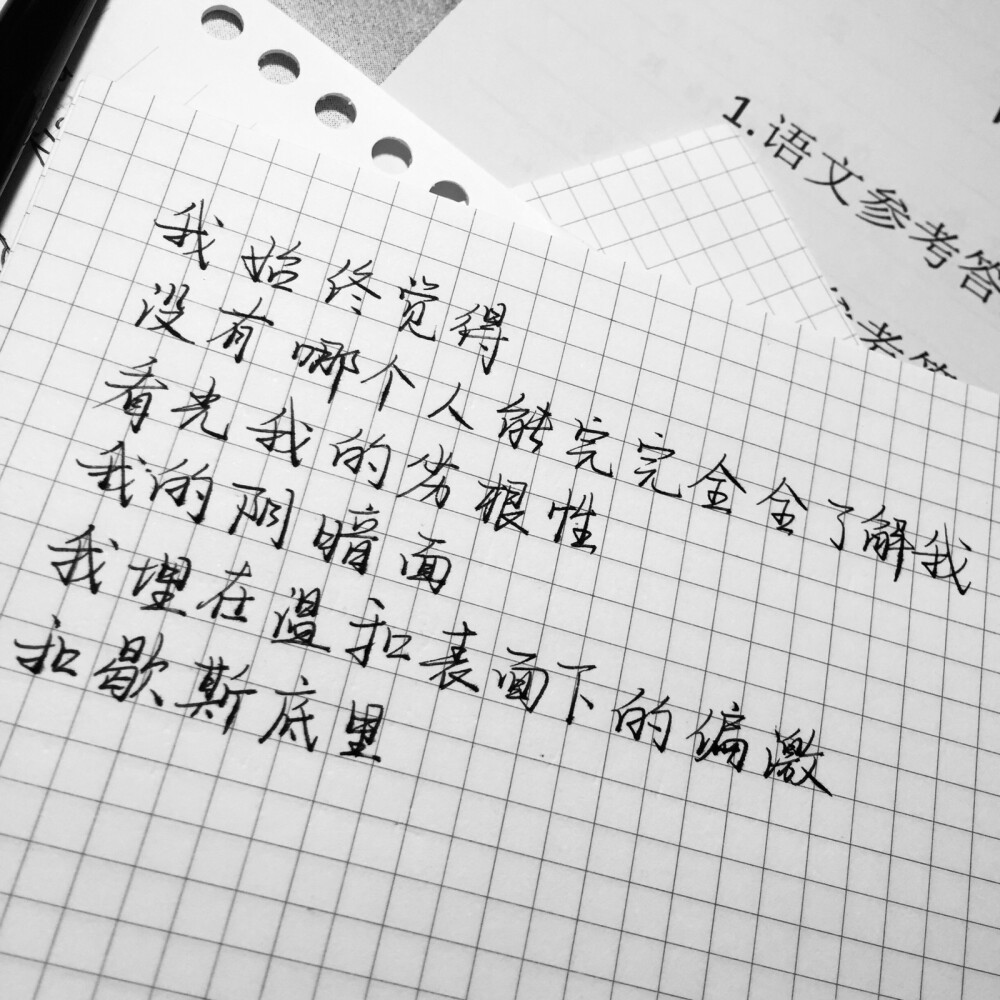 我始终觉得
没有哪个人能完完全全了解我
看光我的劣根性
我的阴暗面
我埋在温和表面下的偏激
和歇斯底里
1.语文参考答
参考答